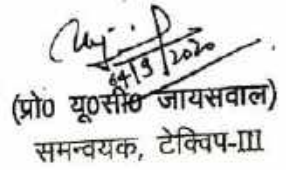 04/9/2020
(प्रो० यू०सी० जायसवाल)
समन्वयक, टेक्विप-III